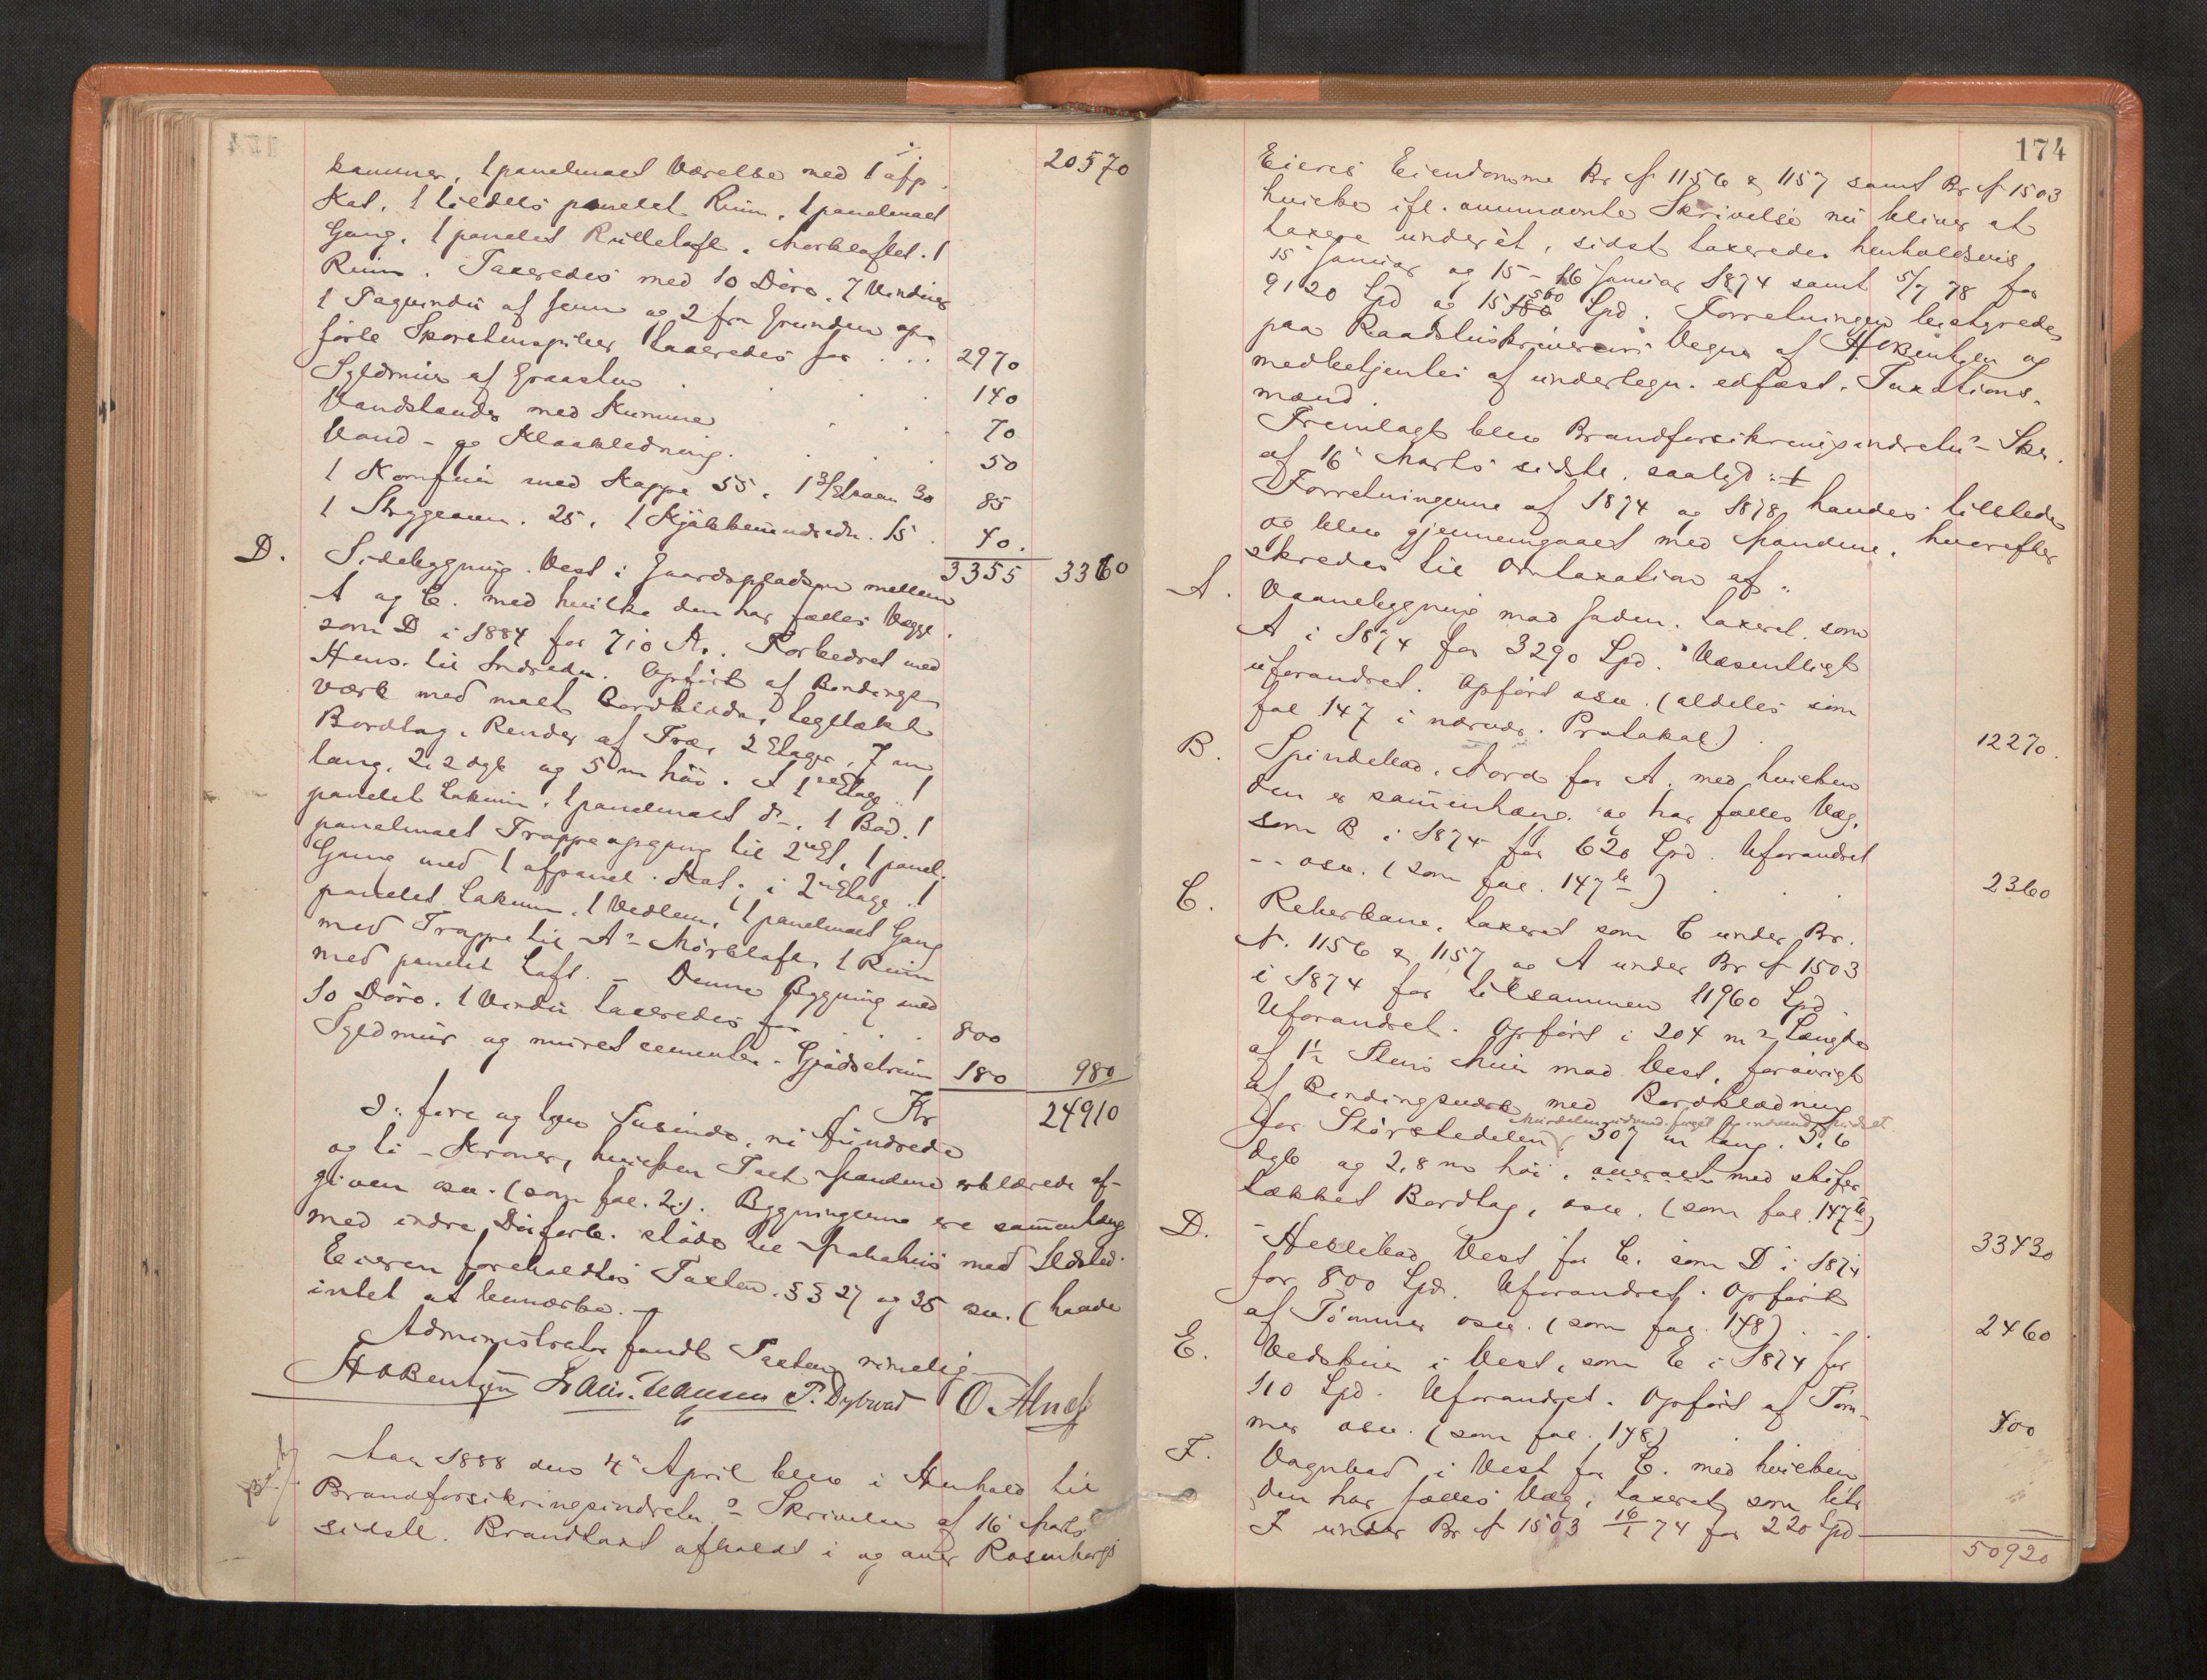 kammer, 1 panelmalt Værelse med 1 afp. 20570
Kat, 1 tildels panelet Rum, 1 panelmalt
Gang, 1 panelet Rulleloft. Mørkloftet. 1
Rum. Taxeredes med 10 Døre, 7 Vinduer
1 Tagvindu af Jern og 2 fra Grunden op-
førte Skorstenspiber taxeredes for . . . 2970
Syldmur af Graasten . . . 140
Vandstander med Kumme . . . 70
Vand- og Kloakledning . . . 50
1 Komfur med Kappe 55, 1 3/Etages 30 85
1 Strygeovn. 25, 1 Kjøkkenindredn. 15 . 40.
3355 3360
D. Sidebygning Vest i Gaardspladsen mellem
A og C. med hvilke den har fælles Vægge.
som D i 1884 for 710 Kr. Forbedret med
Hens. til Indredn. Opført af Bindings-
værk med malt Bordklædn, teglтækt
Bordtag, Render af Træ, 2 Etager, 7 m
lang, 2,2 dyb og 5 m høi. I 1ste Etage 1
panelet Lokum, 1 panelmalt do, 1 Bod. 1
panelmalt Trappeopgang til 2den Et, 1 panel.
Gang med 1 afpanel. Kat. i 2den Etage 1
panelet Lokum, 1 Vedlem, 1 panelmalt Gang
med Trappe til A's Mørkloft, 1 Rum
med panelet Loft. - Denne Bygning med
10 Døre. 1 Vindu taxeredes for . . . 800
Syldmur og muret cementer. Gjødselrum 180 980
Kr 24910
ɔ: fire og tyve Tusinde, ni Hundrede
og ti - Kroner, hvilken Taxt Mændene erklærede af-
given osv. (som fol. 2.). Bygningerne ere sammenhæng
med indre Dørforb. støde til Nabohus med Ildsted.
Eieren foreholdtes Taxten. §§ 27 og 35 osv. (havde
intet at bemærke. -
Administrator fandt Taxten rimelig
HABentzen Laur. Hansen P. Dybwad O. Alnæs
Aar 1888 den 4de April blev i Henhold til
Brandforsikringsindretn.s Skrivelse af 16 Marts
sidstl. Brandtaxt afholdt i og over Rosenborgs
174
Eieres Eiendomme Br. № 1156 & 1157 samt Br № 1503
hvilke ifl. ovennævnte Skrivelse nu bliver at
taxere underét, sidst taxeredes henholdsvis
15 Januar og 15 - 16 Januar 1874 samt 5/7 78 for
9120 Spd og 15 560 Spd. Forretningen bestyredes
paa Raadstuskriverens Vegne af HABentzen og
medbetjentes af undertegn. edfæst. Taxations-
mænd.
Fremlagt blev Brandforsikringsindretn.s Skr.
af 16 Marts sidstl. saalyd: ⸗
Forretningerne af 1874 og 1878 havdes tilstede
og blev gjennemgaaet med Mændene, hvorefter
skredes til Omtaxation af:
A. Vaanebygning mod Gaden. taxeret som
A i 1874 for 3290 Spd. Væsentligt
uforandret. Opført osv. (aldeles som
fol 147 i nærvær. Protokol) 12270.
B. Spindebod, Nord for A, med hvilken
den er sammenhæng. og har fælles Væg,
som B i 1874 for 620 Spd. Uforandret
-- osv. (som fol. 147 b) . . . 2360
C. Reberbane, taxeret som C under Br.
№. 1156 & 1157 og A under Br № 1503
i 1874 for tilsammen 11960 Spd.
Uforandret. Opført i 204 m's Længde
af 1½ Stens Mur mod Vest, forøvrigt
af Bindingsværk med Bordklædning
for Størstedelen, 307 m lang. 5,6
dyb og 2,8 m høi, overalt med skifer
tækket Bordtag, osv. (som fol. 147 b) 33430
D. Heklebod Vest for C. som D i 1874
for 800 Spd. Uforandret. Opført
af Tømmer osv. (som fol. 148) . . . 2460
E. Vedskur i Vest, som E i 1874 for
110 Spd. Uforandret. Opført af Tøm-
mer osv. (som fol. 148) 400
F. Vognbod i Vest for C. med hvilken
den har fælles Væg, taxeret som litr
F under Br № 1503 16/1 74 for 220 Spd
50920